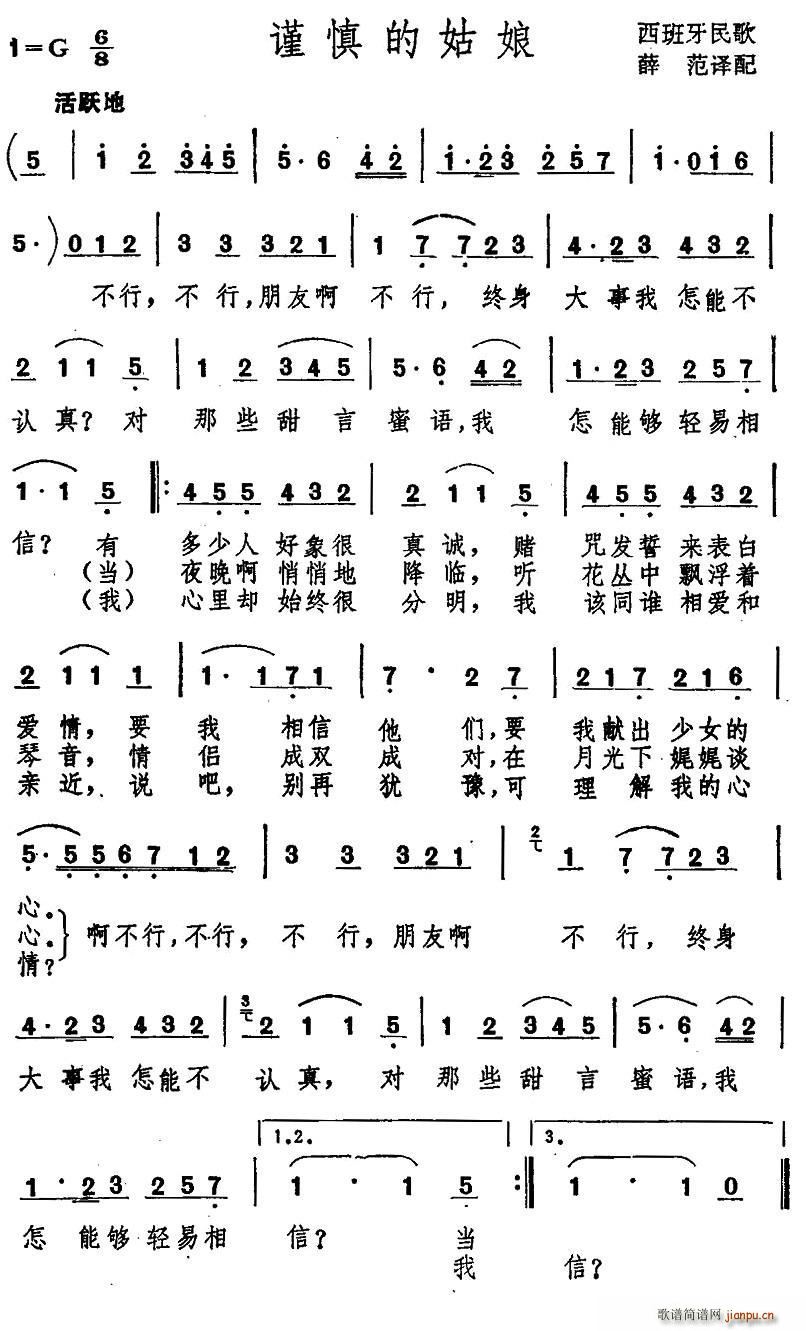 谨慎的姑娘
1=G 6/8
西班牙民歌
薛 范译配
活跃地
(5 | 1 2 345 | 5·6 42 | 1·23 257 | 1·016 |
5·) 012 | 3 3 321 | 1 7 723 | 4·23 432 |
不行，不行,朋友啊 不行，终身 大事我怎能不
2 11 5 | 1 2 345 | 5·6 42 | 1·23 257 |
认真？对 那些甜言 蜜语,我 怎能够轻易相
1·1 5 ‖: 455 432 | 2 11 5 | 455 432 |
信？ 有 多少人好象很 真诚，赌 咒发誓来表白
（当）夜晚啊悄悄地 降临，听 花丛中飘浮着
（我）心里却始终很 分明，我 该同谁相爱和
2 11 1 | 1·171 | 7·2 7 | 217 216 |
爱情，要 我 相信 他 们,要 我献出少女的
琴音，情 侣 成双 成 对,在 月光下娓娓谈
亲近，说 吧，别再 犹 豫,可 理解我的心
5·5567 12 | 3 3 321 | 2 1 7 723 |
心。
心。
情？
啊不行,不行，不 行，朋友啊 不 行，终身
4·23 432 | 3 2 11 5 | 1 2 345 | 5·6 42 |
大事我怎能不 认真，对 那些甜言 蜜语,我
1.2. 3.
1·23 257 | 1·1 5 :‖ 1·1 0 ‖
怎 能够轻易相 信？ 当
我 信？
歌谱简谱网 jianpu.cn